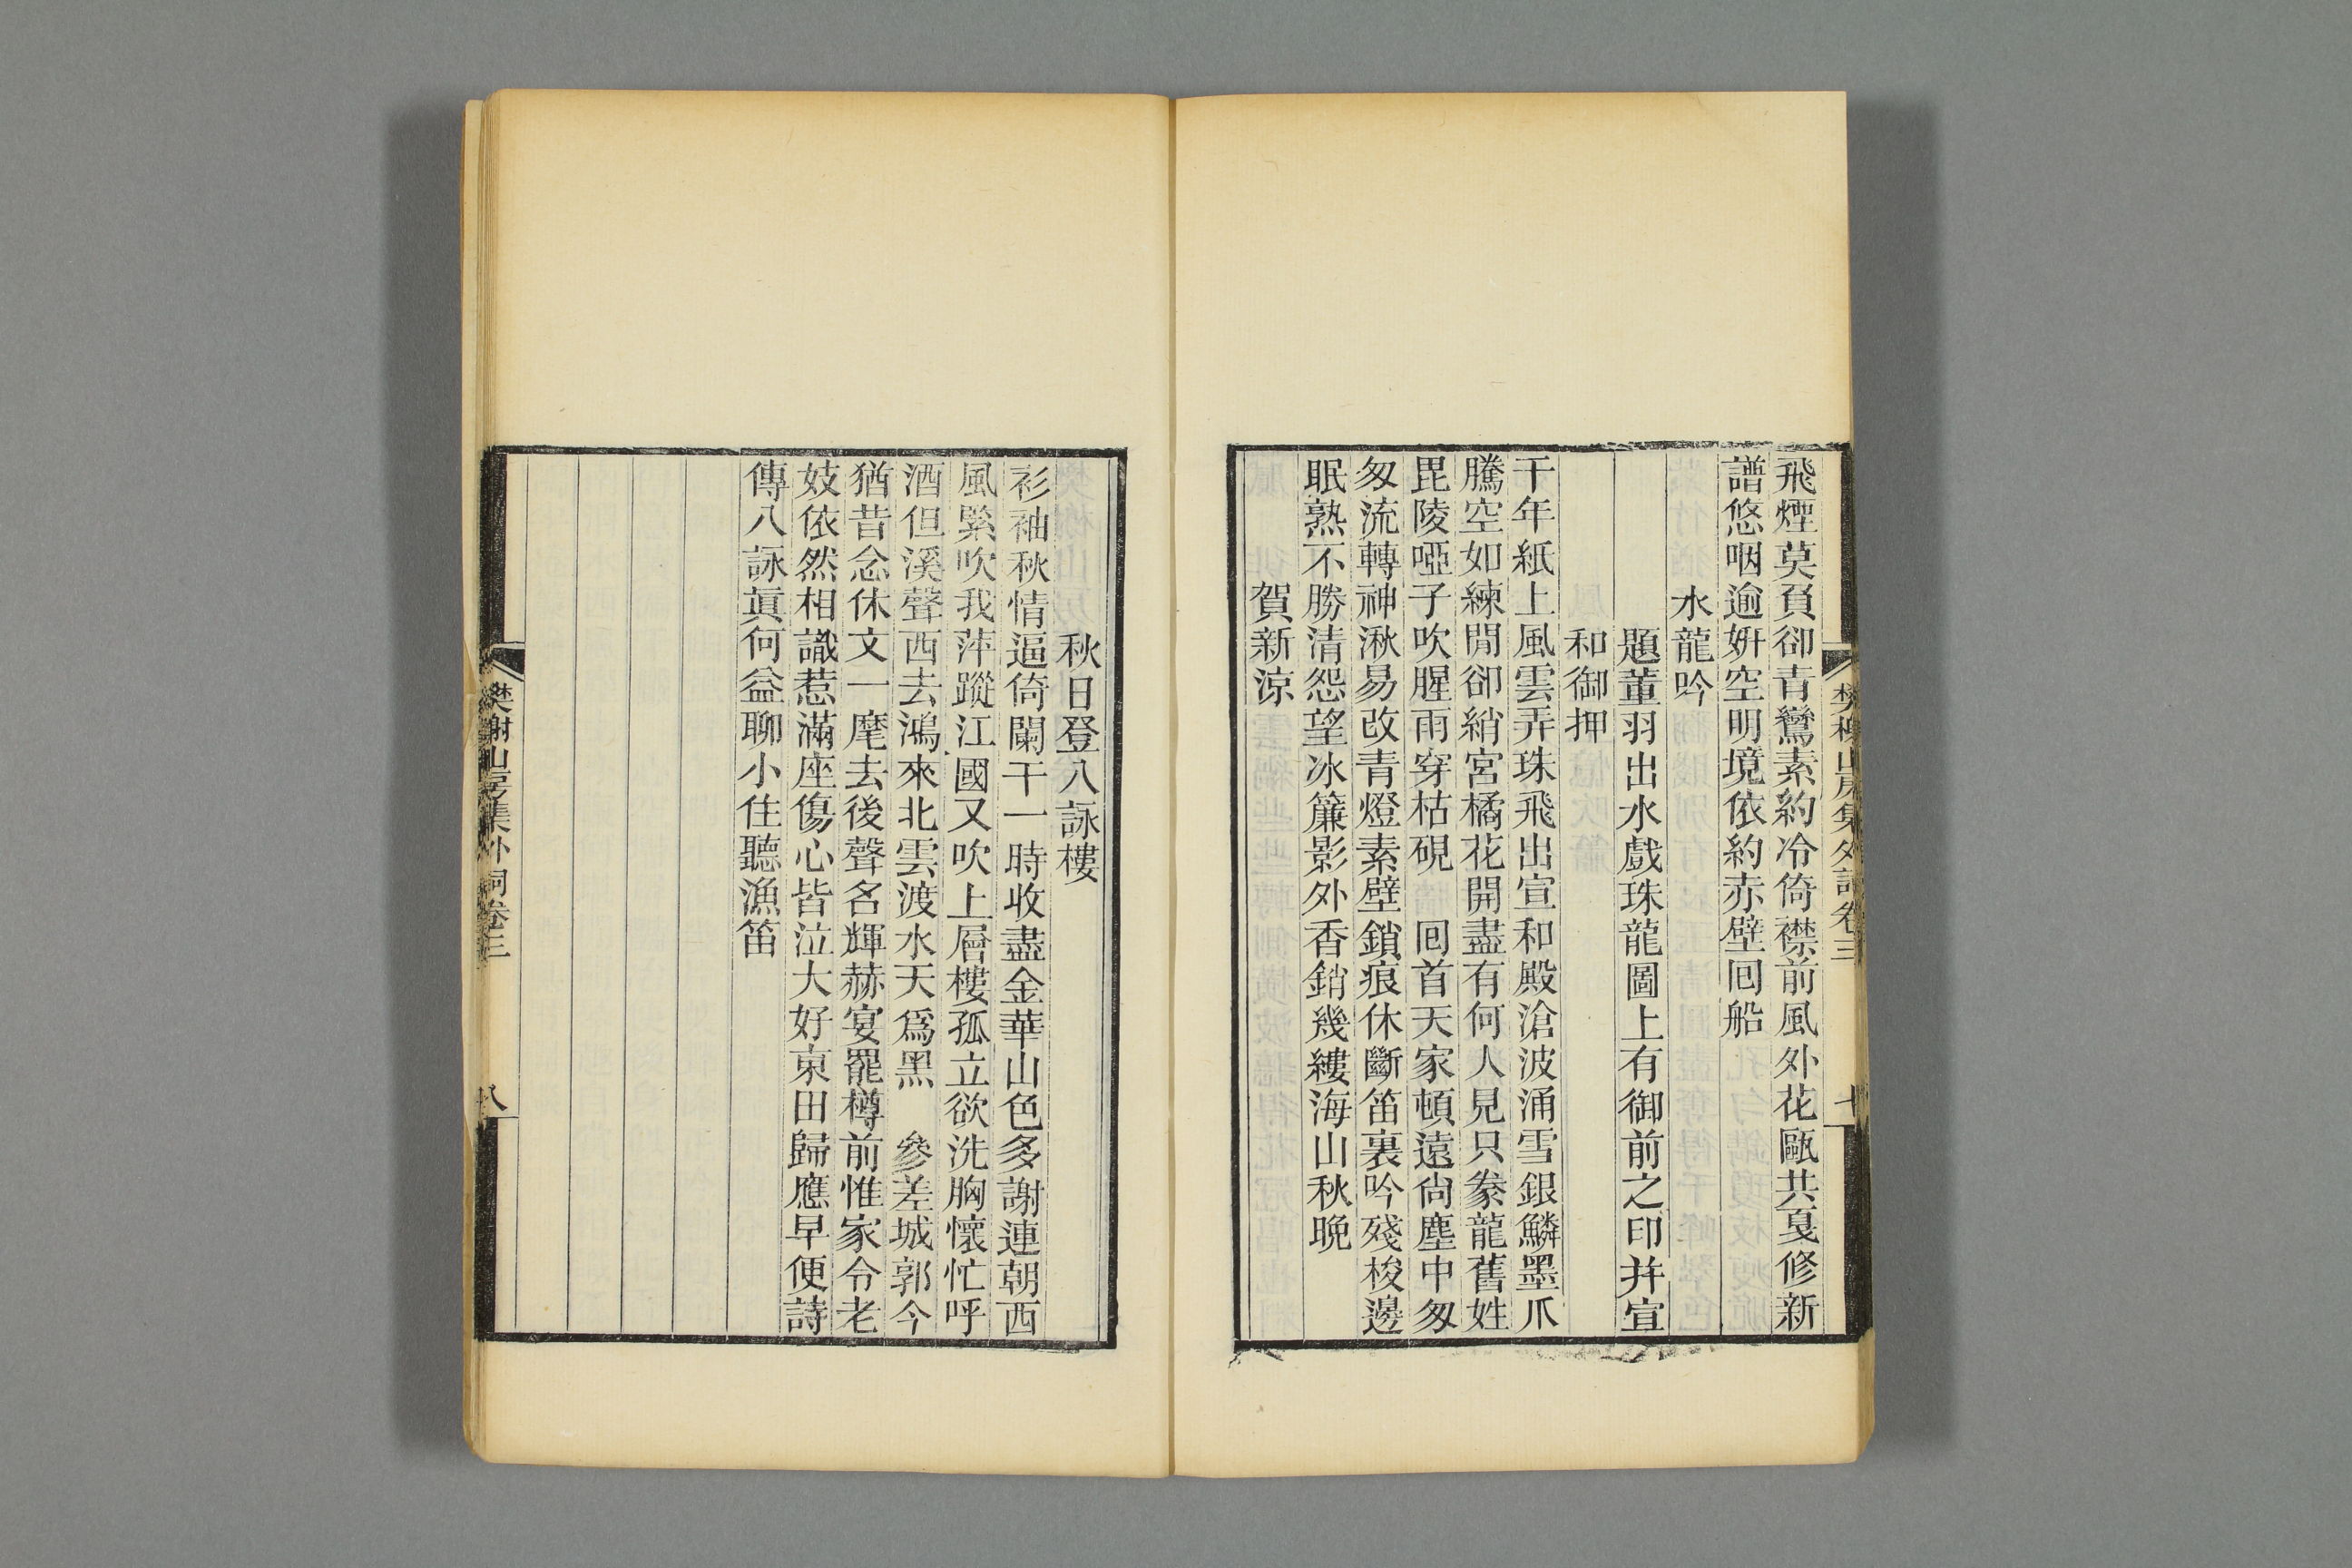 飛煙莫負卻青鸞素約冷倚襟前風外花甌共戛修新
譜悠咽逾妍空明境依約赤壁囘船
水龍吟
題董羽出水戲珠龍圖上有御前之印并宣
和御押
千年紙上風雲弄珠飛出宣和殿滄波涌雪銀鱗墨爪
騰空如練閒卻綃宮橘花開盡有何人見只豢龍舊姓
毘陵啞子吹腥雨穿枯硯　囘首天家頓遠尙塵中匆
匆流轉神湫易改青燈素壁鎖痕休斷笛裏吟殘梭邊
眠熟不勝清怨望冰簾影外香銷幾縷海山秋晚
賀新涼
樊榭山房集外詞卷三
七
秋日登八詠樓
衫袖秋情逼倚闌干一時收盡金華山色多謝連朝西
風緊吹我萍蹤江國又吹上層樓孤立欲洗胸懷忙呼
酒但溪聲西去鴻來北雲渡水天爲黑　參差城郭今
猶昔念休文一麾去後聲名輝赫宴罷樽前惟家令老
妓依然相識惹滿座傷心皆泣大好東田歸應早便詩
傳八詠眞何益聊小住聽漁笛
樊謝山房集外詞卷三
八